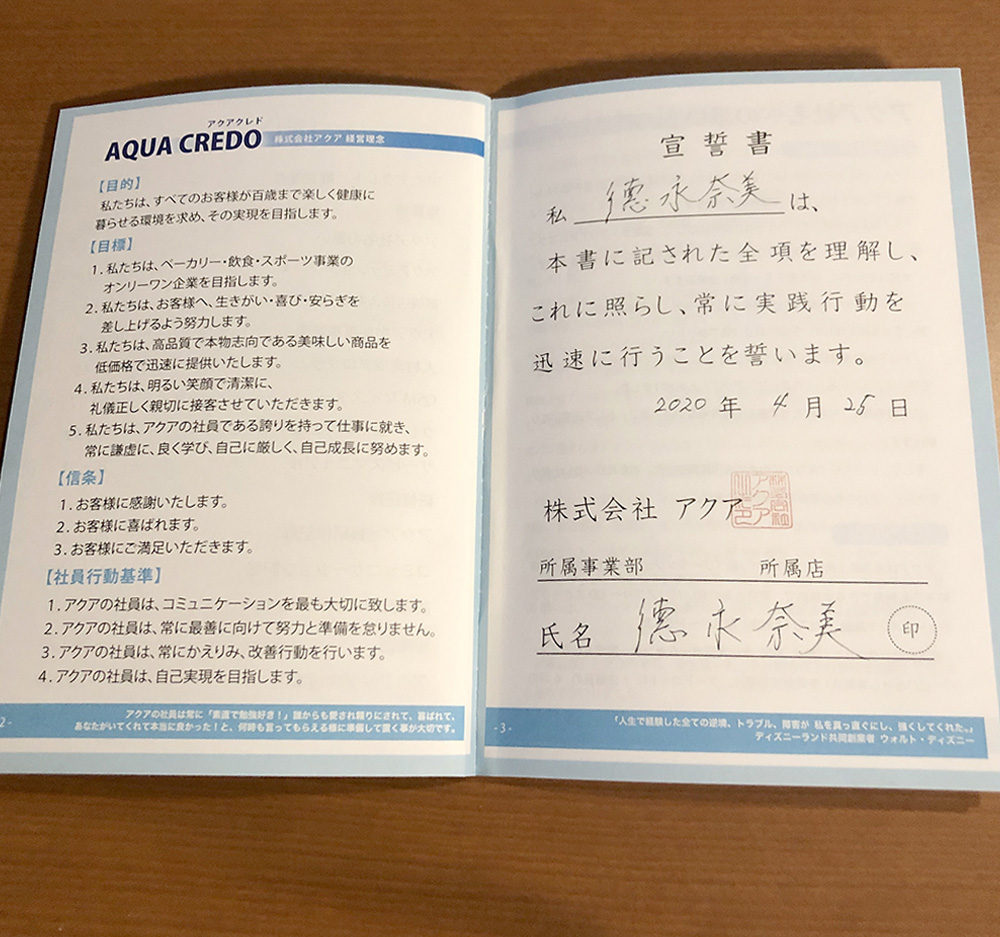 アクアクレド
AQUA CREDO 株式会社アクア 経営理念
【目的】
私たちは、すべてのお客様が百歳まで楽しく健康に
暮らせる環境を求め、その実現を目指します。
【目標】
1. 私たちは、ベーカリー・飲食・スポーツ事業の
オンリーワン企業を目指します。
2. 私たちは、お客様へ、生きがい・喜び・安らぎを
差し上げるよう努力します。
3. 私たちは、高品質で本物志向である美味しい商品を
低価格で迅速に提供いたします。
4. 私たちは、明るい笑顔で清潔に、
礼儀正しく親切に接客させていただきます。
5. 私たちは、アクアの社員である誇りを持って仕事に就き、
常に謙虚に、良く学び、自己に厳しく、自己成長に努めます。
【信条】
1. お客様に感謝いたします。
2. お客様に喜ばれます。
3. お客様にご満足いただきます。
【社員行動基準】
1. アクアの社員は、コミュニケーションを最も大切に致します。
2. アクアの社員は、常に最善に向けて努力と準備を怠りません。
3. アクアの社員は、常にかえりみ、改善行動を行います。
4. アクアの社員は、自己実現を目指します。
アクアの社員は常に「素直で勉強好き!」誰からも愛され頼りにされて、喜ばれて、
あなたがいてくれて本当に良かった!と、何時も言ってもらえる様に準備して置く事が大切です。
2 -
宣誓書
私 德永奈美 は、
本書に記された全項を理解し、
これに照らし、常に実践行動を
迅速に行うことを誓います。
2020 年 4 月 25 日
株式会社 アクア
所属事業部 所属店
氏名 德永奈美 印
- 3 -
「人生で経験した全ての逆境、トラブル、障害が 私を真っ直ぐにし、強くしてくれた。」
ディズニーランド共同創業者 ウォルト・ディズニー